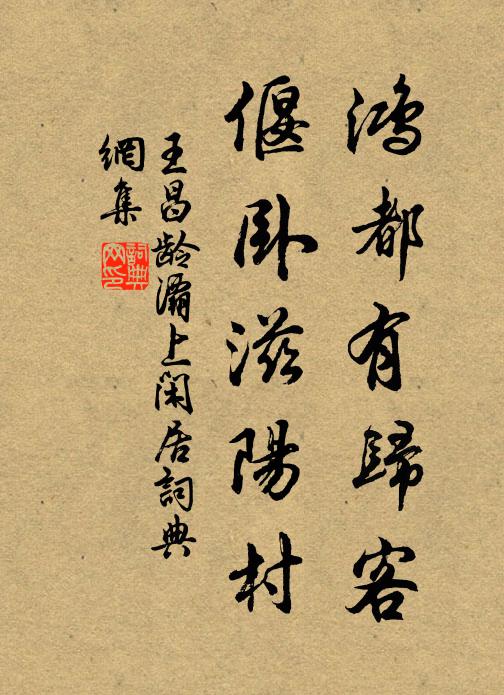 鸿都有歸客
偃卧滋陽村
王昌龄灞上闲居詞典
網集
詞典
网印